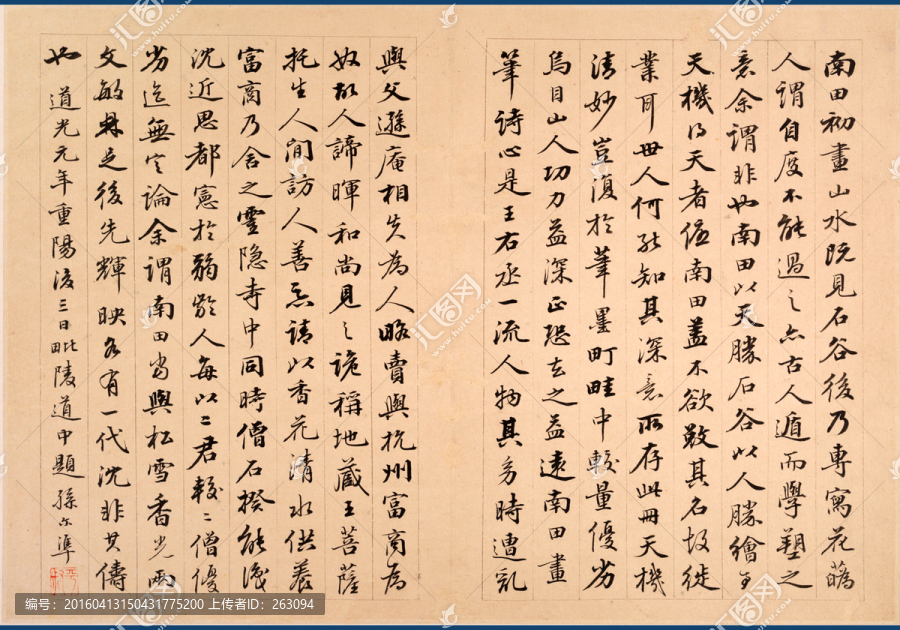 南田初畫山水既見石谷後乃專寫花鷭
人謂自度不能過之亦古人遁而學塑之
意余謂非也南田以天勝石谷以人勝繪至
天機得天者優南田蓋不欲斁其名故徙
業耳毋人何能知其深意所存此冊天機
清妙豈復於筆墨町畦中較量優劣
烏目山人功力益深正恐去之益遠南田畫
筆詩心是王右丞一流人物其多時遭乱
與父遜庵相失為人略賣與杭州富商為
奴故人諦暉和尚見之詭稱地藏王菩薩
托生人間訪人善惡請以香花清水供養
富商乃舍之靈隱寺中同時僧石揆能識
沈近思都憲於弱齡人每以二君較二僧優
劣迄無定論余謂南田當與松雪香光兩
文敏具足後先輝映各有一代沈非其儔
也 道光元年重陽後三日毗陵道中題孫尔準
汇图网
www.huitu.com
编号：20160413150431775200 上传者ID：263094